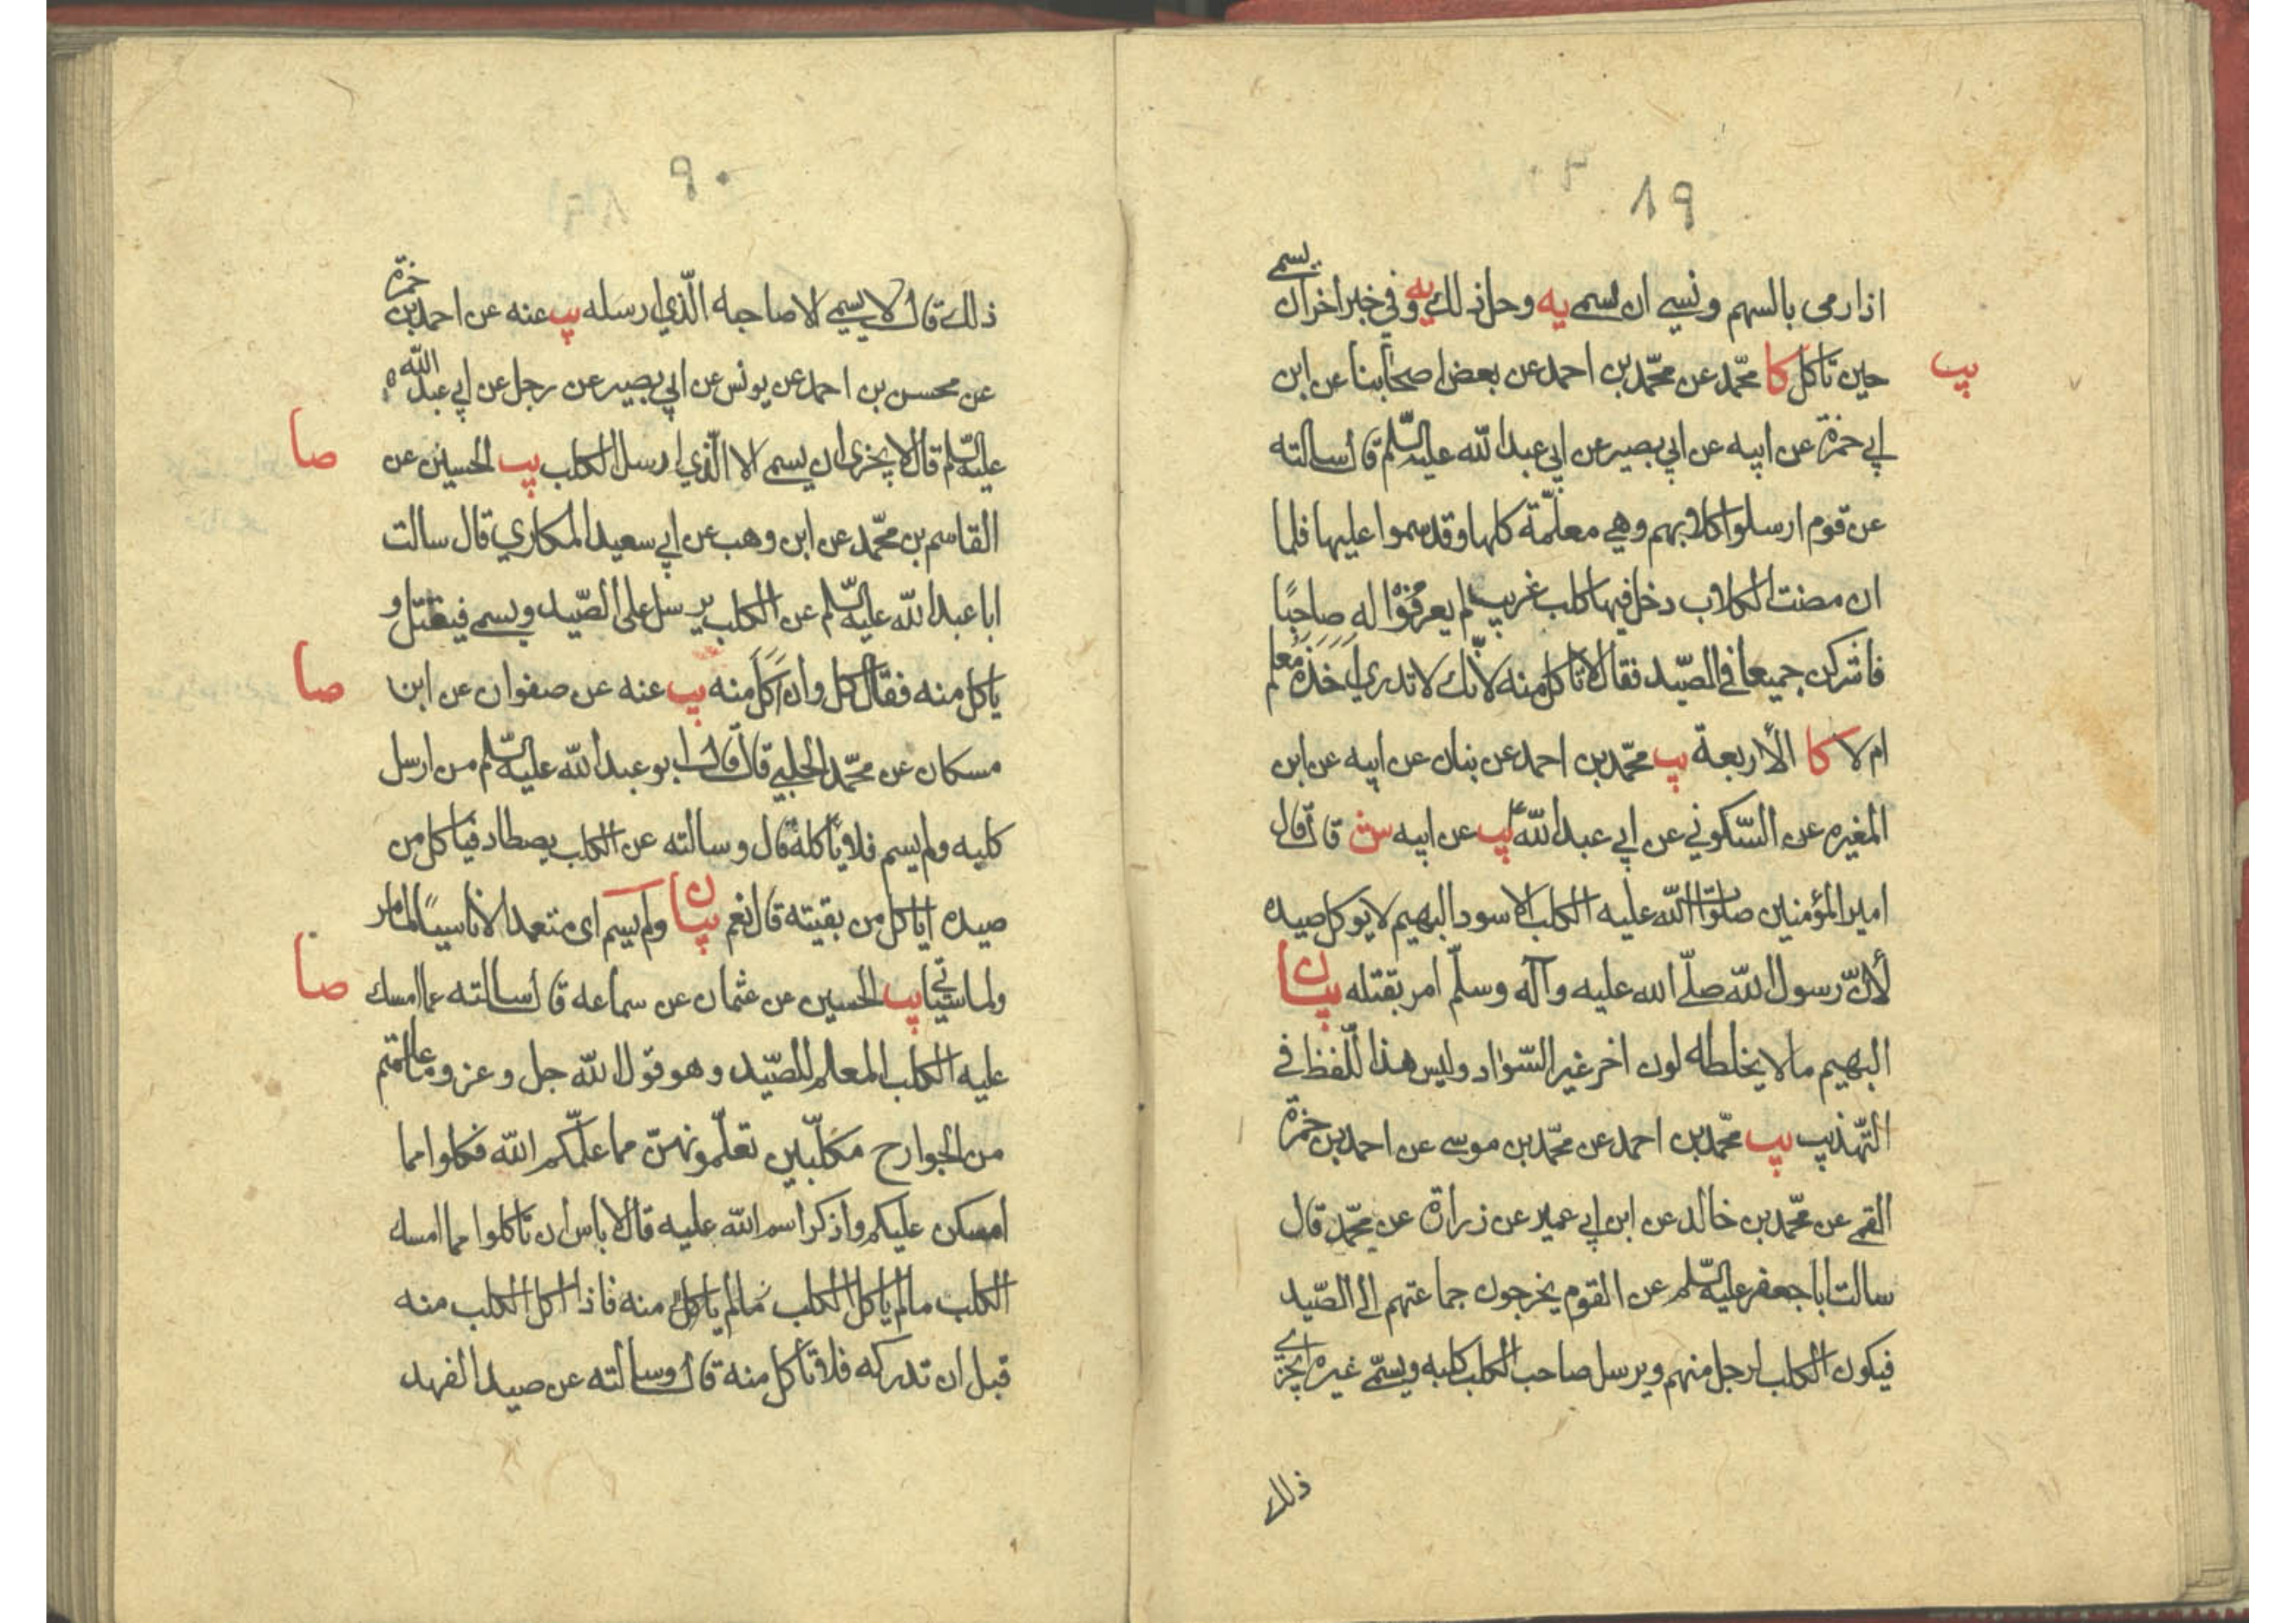 ٨٩
يسمى
اذا رمى بالسهم ونسي ان يسمى يه وحل ذلك يه وفي خبر اخر ان
يب
حين تأكل كا محمّد عن محمّد بن احمد عن بعض اصحابنا عن ابن
ابي حمزة عن ابيه عن ابي بصير عن ابي عبد الله عليه السّلم قال سالته
عن قوم ارسلوا كلابهم وهي معلّمة كلها وقد سموا عليها فلما
ان مضت الكلاب دخل فيها كلب غريب لم يعرفوا له صاحبًا
فاشتركن جميعا في الصّيد فقال لا تاكل منه لانّك لا تدري اخذه معلم
ام لا كا الأربعة يب محمّد بن احمد عن بنان عن ابيه عن ابن
المغيره عن السّكوني عن ابي عبد الله ع يب عن ابيه ش قال قال
امير المؤمنين صلوات الله عليه الكلب الاسود البهيم لا يوكل صيده
لأنّ رسول الله صلّى الله عليه وآله وسلّم امر بقتله بيان
البهيم ما لا يخلطه لون اخر غير السّواد وليس هذا اللّفظ في
التّهذيب يب محمّد بن احمد عن محمّد بن موسى عن احمد بن حمزة
القمي عن محمّد بن خالد عن ابن ابي عمير عن زرارة عن محمّد قال
سالت ابا جعفر عليه السّلم عن القوم يخرجون جماعتهم الى الصّيد
فيكون الكلب لرجل منهم ويرسل صاحب الكلب كلبه ويسمّى غيره ايجزى
ذلك
٩٠
ذلك قال لا يسمى الا صاحبه الّذي ارسله يب عنه عن احمد بن حمزة
عن محسن بن احمد عن يونس عن ابي بصير عن رجل عن ابي عبد الله
صا
عليه السّلم قال لا يجزى ان يسمى الا الّذي ارسل الكلب يب الحسين عن
القاسم بن محمّد عن ابن وهب عن ابي سعيد المكاري قال سالت
ابا عبد الله عليه السّلم عن الكلب يرسل على الصّيد ويسمى فيقتل و
صا
ياكل منه فقال كل وان اكل منه يب عنه عن صفوان عن ابن
مسكان عن محمّد الحلبي قال قال ابو عبد الله عليه السّلم من ارسل
كلبه ولم يسم فلا ياكله قال وسالته عن الكلب يصطاد فياكل من
صيده اياكل من بقيته قال نعم بيان ولم يسم اى متعمدا لا ناسيًا لما مر
صا
ولما سيأتي يب الحسين عن عثمان عن سماعه قال سالته عما امسك
عليه الكلب المعلم للصّيد وهو قول الله جل وعز وما علمتم
من الجوارح مكلّبين تعلّمونهنّ مما علّمكم الله فكلوا مما
امسكن عليكم واذكر اسم الله عليه قال لا باس ان تاكلوا مما امسك
الكلب ما لم ياكل الكلب ما لم ياكل منه فاذا اكل الكلب منه
قبل ان تدركه فلا تأكل منه قال وسالته عن صيد الفهد